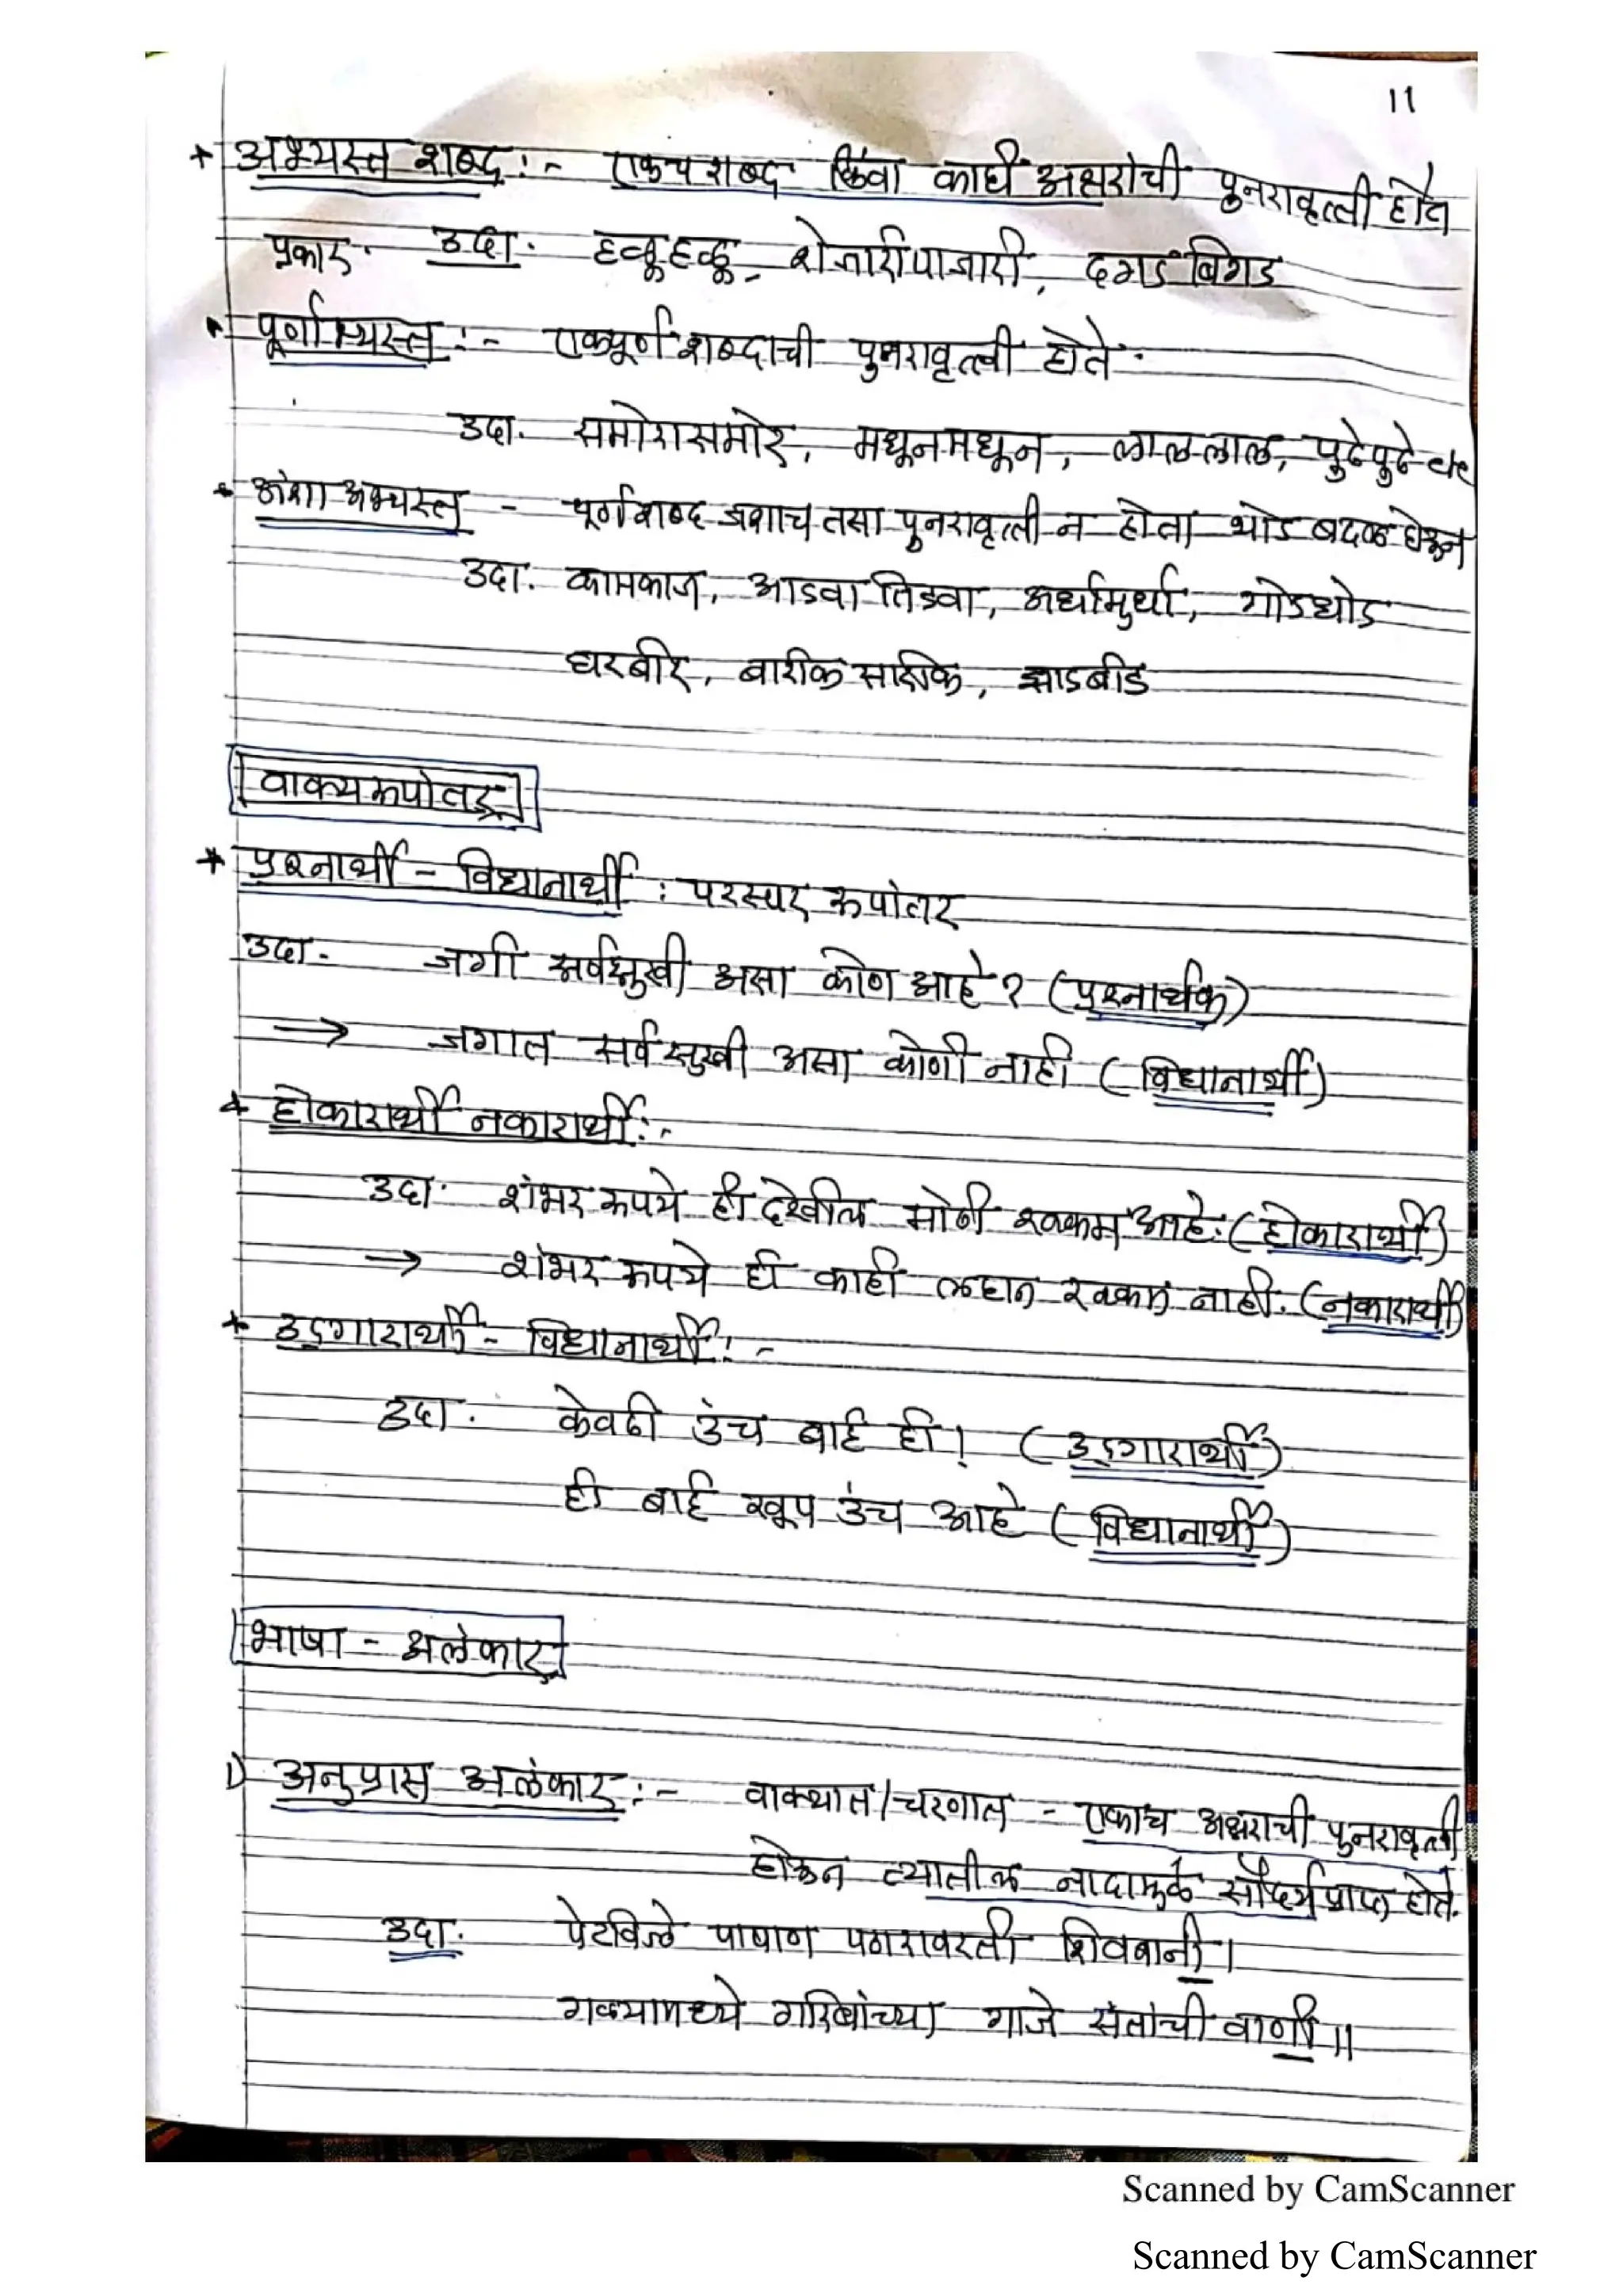 11
* अभ्यस्त शब्द :- एकच शब्द किंवा काही अक्षरांची पुनरावृत्ती होते
प्रकार. उदा. हळूहळू, शेजारीपाजारी, दगडबिगड
* पूर्णाभ्यस्त :- एकपूर्ण शब्दाची पुनरावृत्ती होते.
उदा. समोरासमोर, मधूनमधून, लाललाल, पुढेपुढे
* अंशाअभ्यस्त - पूर्ण शब्द जशाच तसा पुनरावृत्ती न होता थोड बदल होऊन
उदा. कामकाज, आडवा तिडवा, अर्धामुर्धा, गोडधोड
घरबीर, बारीक सारीक, झाडबीड
वाक्य रूपांतर
* प्रश्नार्थी - विधानार्थी : परस्पर रूपांतर
उदा. जगी सर्वसुखी असा कोण आहे ? (प्रश्नार्थक)
→ जगात सर्व सुखी असा कोणी नाही (विधानार्थी)
* होकारार्थी नकारार्थी :-
उदा. शंभर रूपये ही देखील मोठी रक्कम आहे. (होकारार्थी)
→ शंभर रूपये ही काही लहान रक्कम नाही. (नकारार्थी)
* उद्गारार्थी - विधानार्थी :-
उदा. केवढी उंच बाई ही ! (उद्गारार्थी)
ही बाई खूप उंच आहे (विधानार्थी)
भाषा - अलंकार
1) अनुप्रास अलंकार :- वाक्यात/चरणात - एकाच अक्षराची पुनरावृत्ती
होऊन त्यातील नादामुळे सौंदर्य प्राप्त होते.
उदा. पेटविले पाषाण पठारावरती शिवबानी ।
गळ्यामध्ये गरिबांच्या गाजे संतांची वाणी ॥
Scanned by CamScanner
Scanned by CamScanner